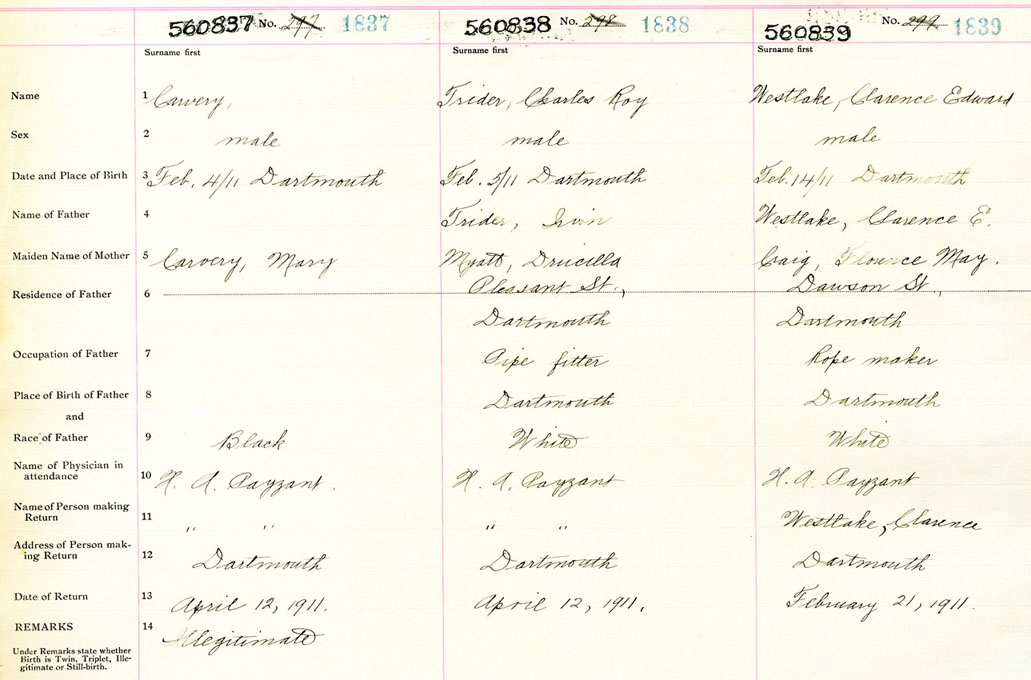 560837 No. 297 1837 560838 No. 298 1838 560839 No. 299 1839
Surname first Surname first Surname first
Name 1 Carvery, Trider, Charles Roy Westlake, Clarence Edward
Sex 2 male male male
Date and Place of Birth 3 Feb. 4/11 Dartmouth Feb. 5/11 Dartmouth Feb. 14/11 Dartmouth
Name of Father 4 Trider, Irvin Westlake, Clarence E.
Maiden Name of Mother 5 Carvery, Mary Myatt, Drucilla Craig, Florence May.
Residence of Father 6 Pleasant St., Dawson St.,
Dartmouth Dartmouth
Occupation of Father 7 Pipe fitter Rope maker
Place of Birth of Father 8 Dartmouth Dartmouth
and
Race of Father 9 Black White White
Name of Physician in
attendance 10 H. A. Payzant. H. A. Payzant H. A. Payzant
Name of Person making
Return 11 " " " " Westlake, Clarence
Address of Person mak-
ing Return 12 Dartmouth Dartmouth Dartmouth
Date of Return 13 April 12, 1911. April 12, 1911. February 21, 1911.
REMARKS 14 Illegitimate
Under Remarks state whether
Birth is Twin, Triplet, Ille-
gitimate or Still-birth.